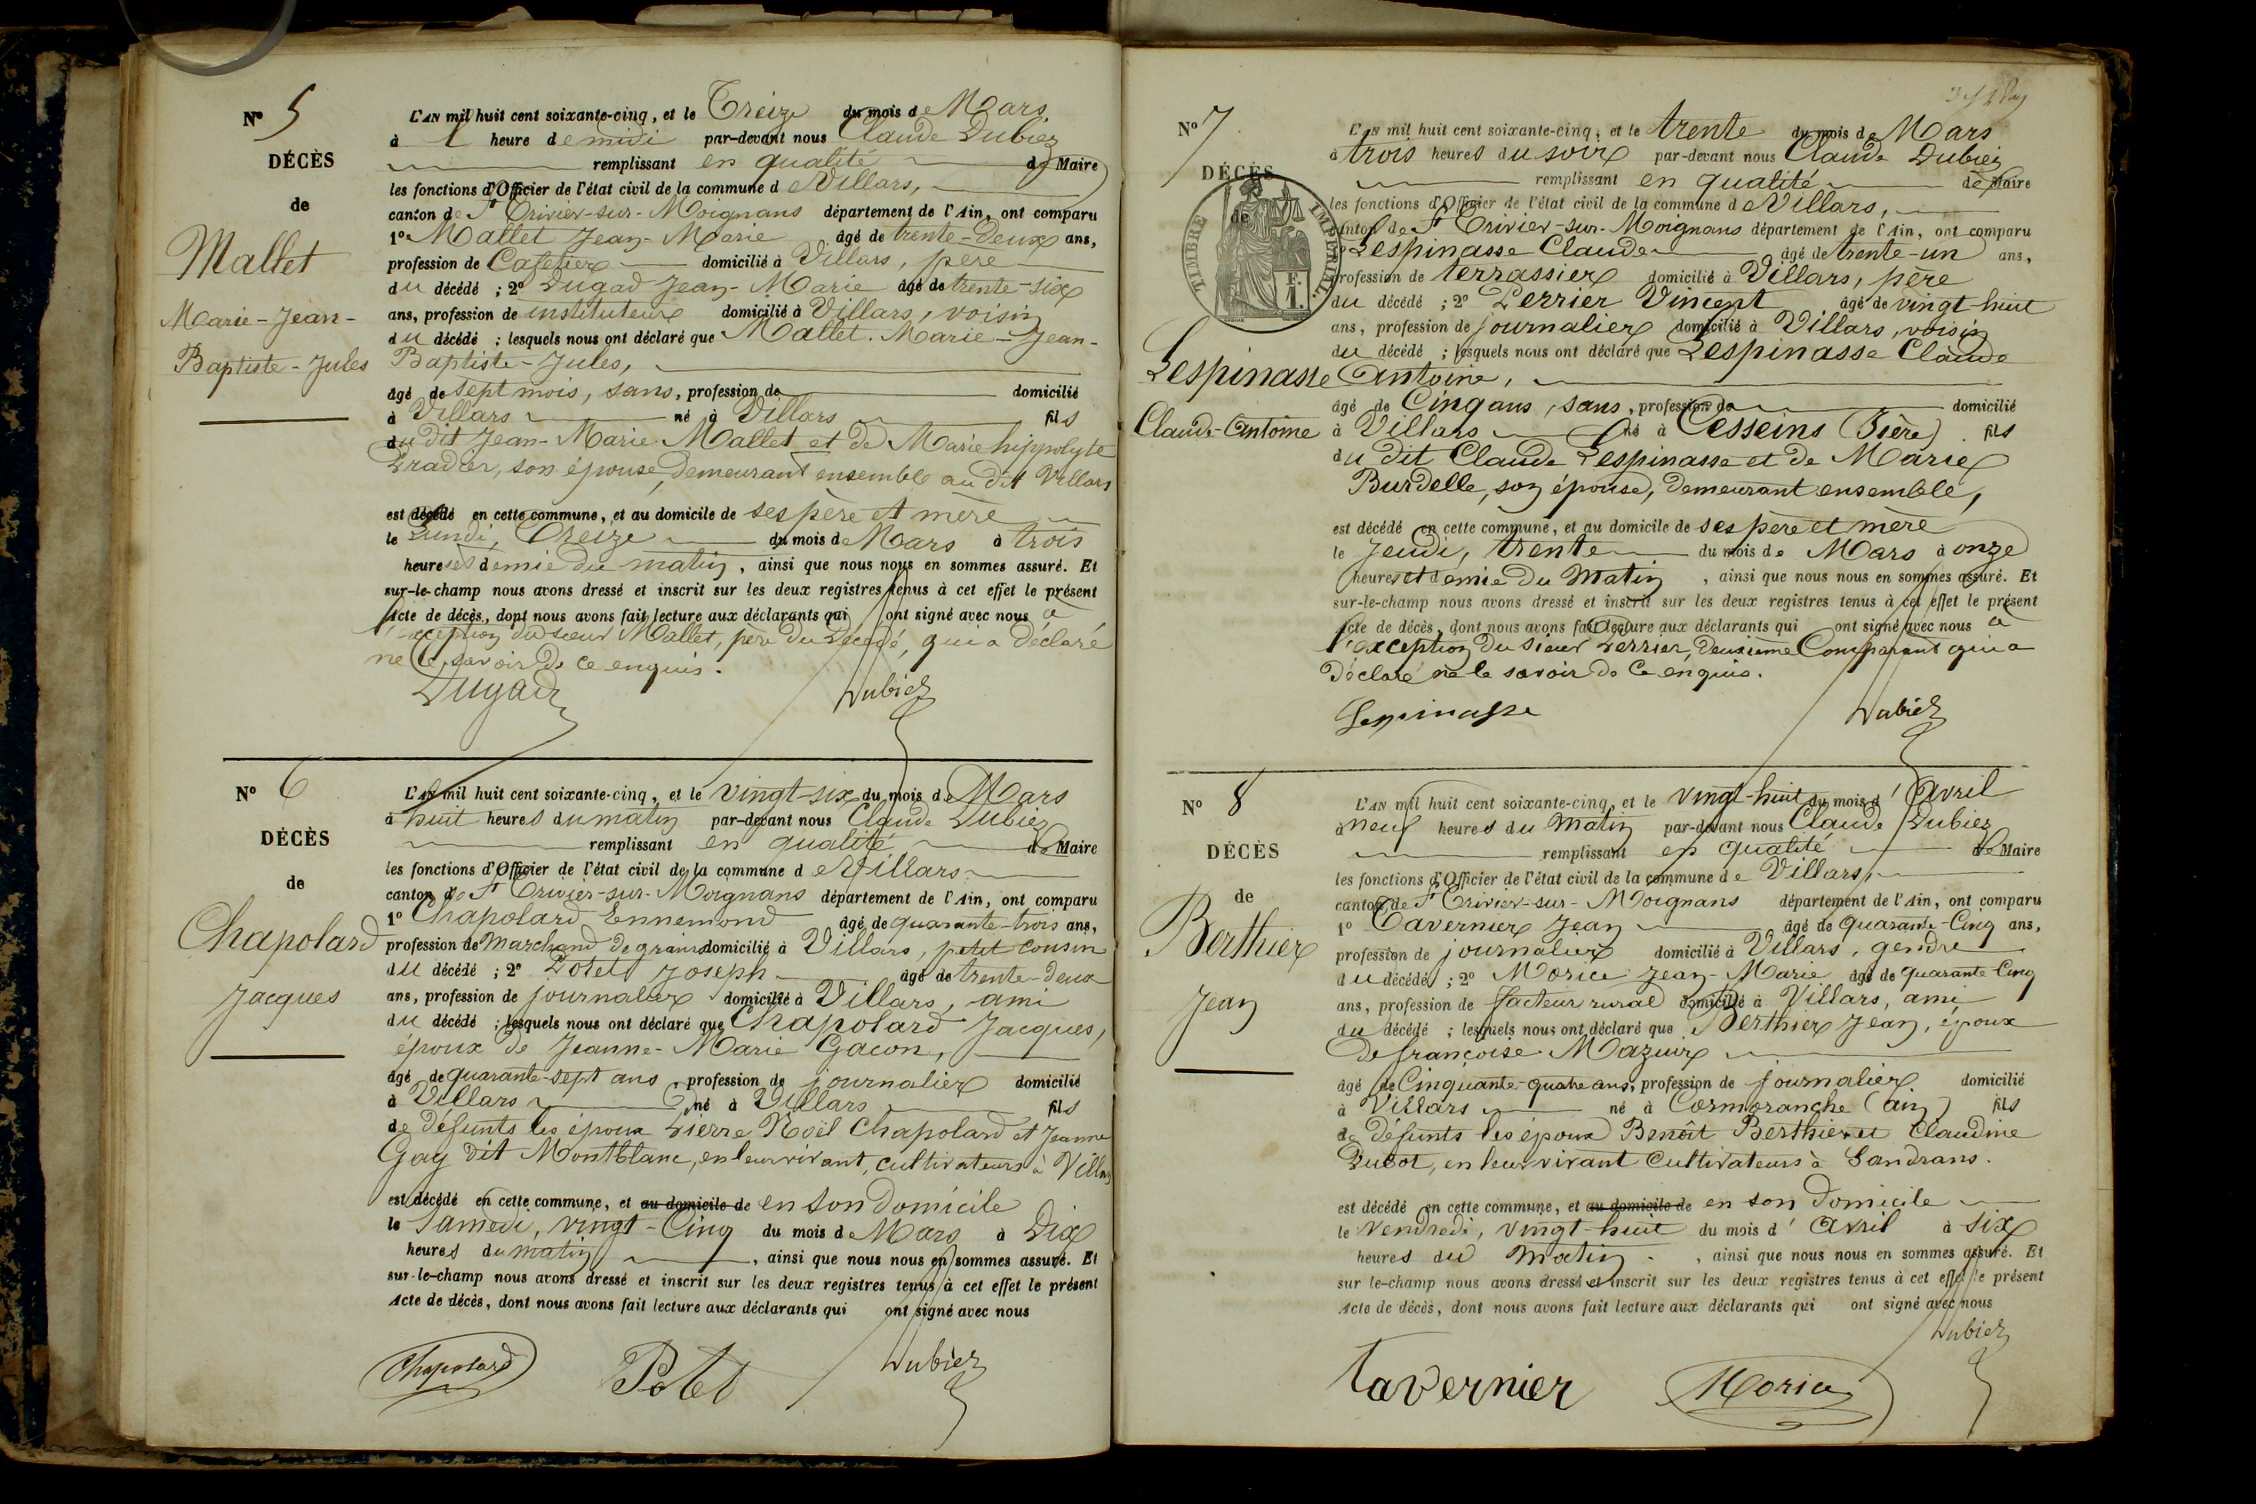 Nº 5
DÉCÈS
de
Mallet
Marie-Jean-
Baptiste-Jules
L'AN mil huit cent soixante-cinq, et le Treize du mois de Mars,
à 1 heure de midi par-devant nous Claude Dubiez
remplissant en qualité de Maire
les fonctions d'Officier de l'état civil de la commune de Villars,
canton de St Trivier-sur-Moignans département de l'Ain, ont comparu
1º Mallet Jean-Marie âgé de trente-deux ans,
profession de Cafetier domicilié à Villars, père
du décédé ; 2º Dugad Jean-Marie âgé de trente-six
ans, profession de instituteur domicilié à Villars, voisin
du décédé ; lesquels nous ont déclaré que Mallet Marie-Jean-
Baptiste-Jules,
âgé de sept mois, sans, profession de domicilié
à Villars né à Villars fils
du dit Jean-Marie Mallet et de Marie hippolyte
Pradier, son épouse, demeurant ensemble au dit Villars
est décédé en cette commune, et au domicile de ses père et mère
le Lundi, Treize du mois de Mars à trois
heures et demie du matin, ainsi que nous nous en sommes assuré. Et
sur-le-champ nous avons dressé et inscrit sur les deux registres tenus à cet effet le présent
Acte de décès, dont nous avons fait lecture aux déclarants qui ont signé avec nous à
l'exception du sieur Mallet, père du décédé, qui a déclaré
ne le savoir de ce enquis.
Dugad Dubiez
Nº 6
DÉCÈS
de
Chapolard
Jacques
L'AN mil huit cent soixante-cinq, et le vingt-six du mois de Mars
à huit heures du matin par-devant nous Claude Dubiez
remplissant en qualité de Maire
les fonctions d'Officier de l'état civil de la commune de Villars
canton de St Trivier-sur-Moignans département de l'Ain, ont comparu
1º Chapolard Ennemond âgé de quarante-trois ans,
profession de Marchand de grains domicilié à Villars, petit cousin
du décédé ; 2º Potet Joseph âgé de trente-deux
ans, profession de journalier domicilié à Villars, ami
du décédé ; lesquels nous ont déclaré que Chapolard Jacques,
époux de Jeanne-Marie Gacon,
âgé de quarante-sept ans, profession de journalier domicilié
à Villars né à Villars fils
de défunts les époux Pierre Noël Chapolard et Jeanne
Gay dit Montblanc, en leur vivant, cultivateurs à Villars
est décédé en cette commune, et au domicile de en son Domicile
le Samedi, vingt-Cinq du mois de Mars à Dix
heures du matin, ainsi que nous nous en sommes assuré. Et
sur-le-champ nous avons dressé et inscrit sur les deux registres tenus à cet effet le présent
Acte de décès, dont nous avons fait lecture aux déclarants qui ont signé avec nous
Chapolard Potet Dubiez
Nº 7
DÉCÈS
de
TIMBRE IMPÉRIAL
F.
1.
Lespinasse
Claude-Antoine
L'AN mil huit cent soixante-cinq, et le trente du mois de Mars
à trois heures du soir par-devant nous Claude Dubiez
remplissant en qualité de Maire
les fonctions d'Officier de l'état civil de la commune de Villars,
canton de St Trivier-sur-Moignans département de l'Ain, ont comparu
Lespinasse Claude âgé de trente-un ans,
profession de terrassier domicilié à Villars, père
du décédé ; 2º Perrier Vincent âgé de vingt huit
ans, profession de journalier domicilié à Villars, voisin
du décédé ; lesquels nous ont déclaré que Lespinasse Claude
Antoine,
âgé de Cinq ans, sans, profession de domicilié
à Villars né à Cesseins (Isère) fils
du dit Claude Lespinasse et de Marie
Burdelle, son épouse, demeurant ensemble,
est décédé en cette commune, et au domicile de ses père et mère
le Jeudi, trente du mois de Mars à onze
heures et demie du Matin, ainsi que nous nous en sommes assuré. Et
sur-le-champ nous avons dressé et inscrit sur les deux registres tenus à cet effet le présent
Acte de décès, dont nous avons fait lecture aux déclarants qui ont signé avec nous à
l'exception du sieur Perrier, deuxième Comparant qui a
déclaré ne le savoir de ce enquis.
Lespinasse Dubiez
Nº 8
DÉCÈS
de
Berthier
Jean
L'AN mil huit cent soixante-cinq, et le vingt-huit du mois d'Avril
à neuf heures du Matin par-devant nous Claude Dubiez
remplissant en qualité de Maire
les fonctions d'Officier de l'état civil de la commune de Villars,
canton de St Trivier-sur-Moignans département de l'Ain, ont comparu
1º Tavernier Jean âgé de quarante-Cinq ans,
profession de journalier domicilié à Villars, gendre
du décédé ; 2º Morice Jean-Marie âgé de quarante Cinq
ans, profession de facteur rural domicilié à Villars, ami
du décédé ; lesquels nous ont déclaré que Berthier Jean, époux
de françoise Mazuir
âgé de Cinquante-quatre ans, profession de journalier domicilié
à Villars né à Cormoranche (ain) fils
de défunts les époux Benoît Berthier et Claudine
Dubot, en leur vivant Cultivateurs à Sandrans.
est décédé en cette commune, et au domicile de en son Domicile
le Vendredi, vingt-huit du mois d'Avril à six
heures du Matin, ainsi que nous nous en sommes assuré. Et
sur le-champ nous avons dressé et inscrit sur les deux registres tenus à cet effet le présent
Acte de décès, dont nous avons fait lecture aux déclarants qui ont signé avec nous
Dubiez
Tavernier Morice